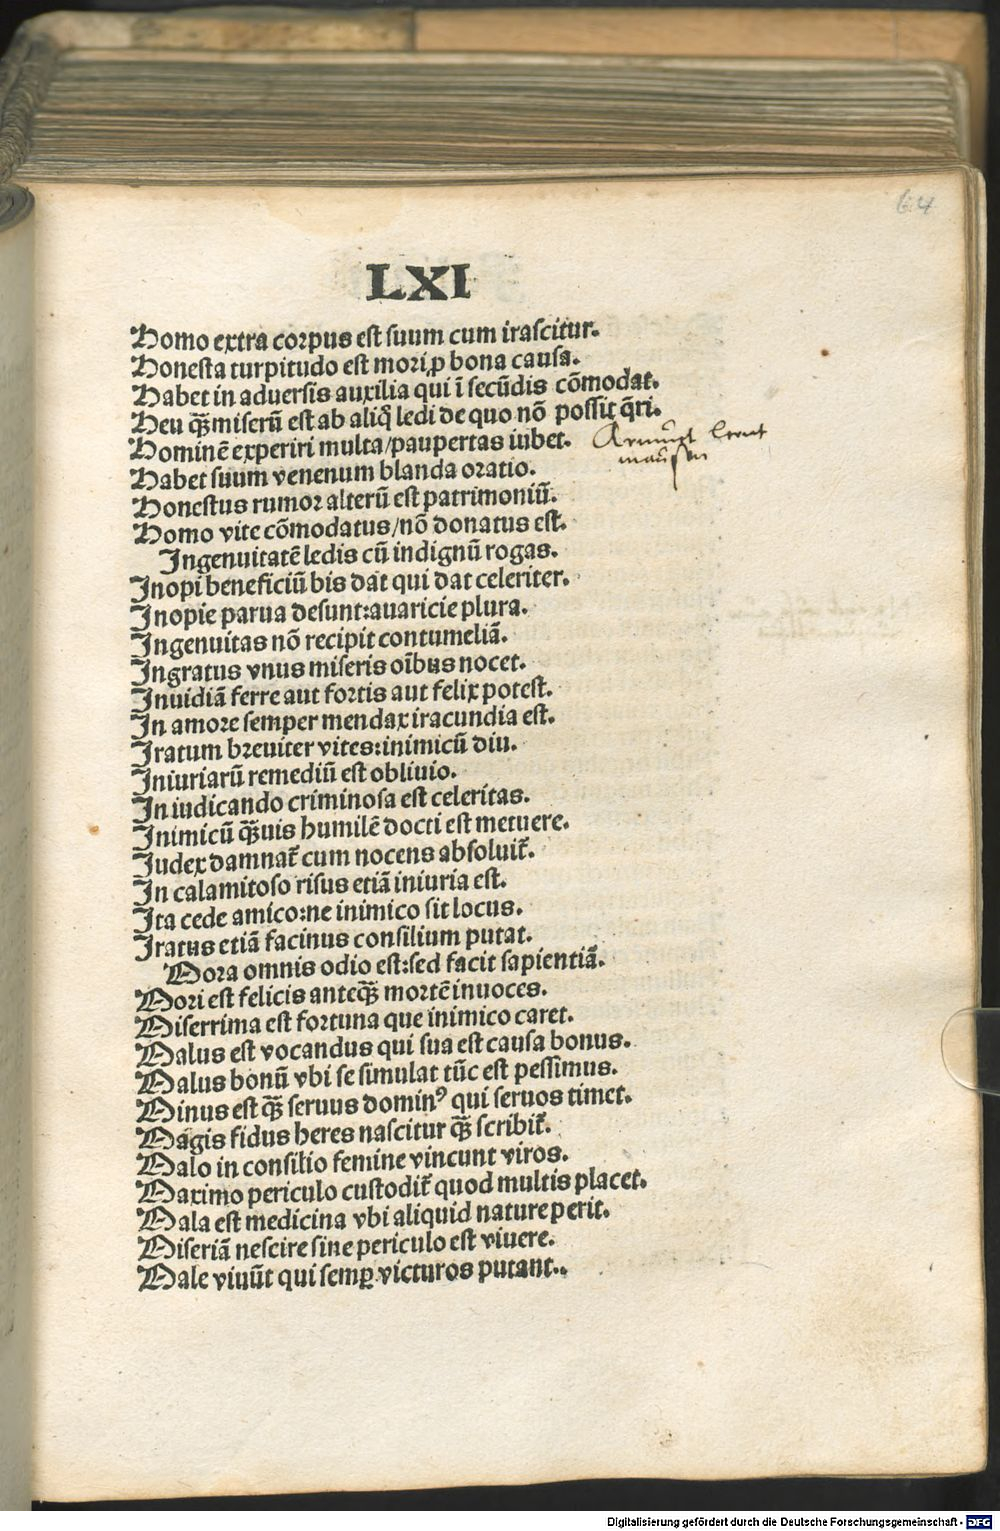 64
LXI
Homo extra corpus est suum cum irascitur.
Honesta turpitudo est mori, ꝓ bona causa.
Habet in aduersis auxilia qui ī secūdis cōmodat.
Heu q̄ꝫ miserū est ab aliq̄ ledi de quo nō possit q̄ri.
Hominē experiri multa/paupertas iubet. Armuet lernt
mausen
Habet suum venenum blanda oratio.
Honestus rumor alterū est patrimoniū.
Homo vite cōmodatus/nō donatus est.
Ingenuitatē ledis cū indignū rogas.
Inopi beneficiū bis dat qui dat celeriter.
Inopie parua desunt:auaricie plura.
Ingenuitas nō recipit contumeliā.
Ingratus vnus miseris oībus nocet.
Inuidiā ferre aut fortis aut felix potest.
In amore semper mendax iracundia est.
Iratum breuiter vites:inimicū diu.
Iniuriarū remediū est obliuio.
In iudicando criminosa est celeritas.
Inimicū q̄ꝫuis humilē docti est metuere.
Iudex damnat᷑ cum nocens absoluit᷑.
In calamitoso risus etiā iniuria est.
Ita cede amico:ne inimico sit locus.
Iratus etiā facinus consilium putat.
Mora omnis odio est:sed facit sapientiā.
Mori est felicis anteq̄ꝫ mortē inuoces.
Miserrima est fortuna que inimico caret.
Malus est vocandus qui sua est causa bonus.
Malus bonū vbi se simulat tūc est pessimus.
Minus est q̄ꝫ seruus dominꝰ qui seruos timet.
Magis fidus heres nascitur q̄ꝫ scribit᷑.
Malo in consilio femine vincunt viros.
Maximo periculo custodit᷑ quod multis placet.
Mala est medicina vbi aliquid nature perit.
Miseriā nescire sine periculo est viuere.
Male viuūt qui semꝑ victuros putant..
Digitalisierung gefördert durch die Deutsche Forschungsgemeinschaft - DFG